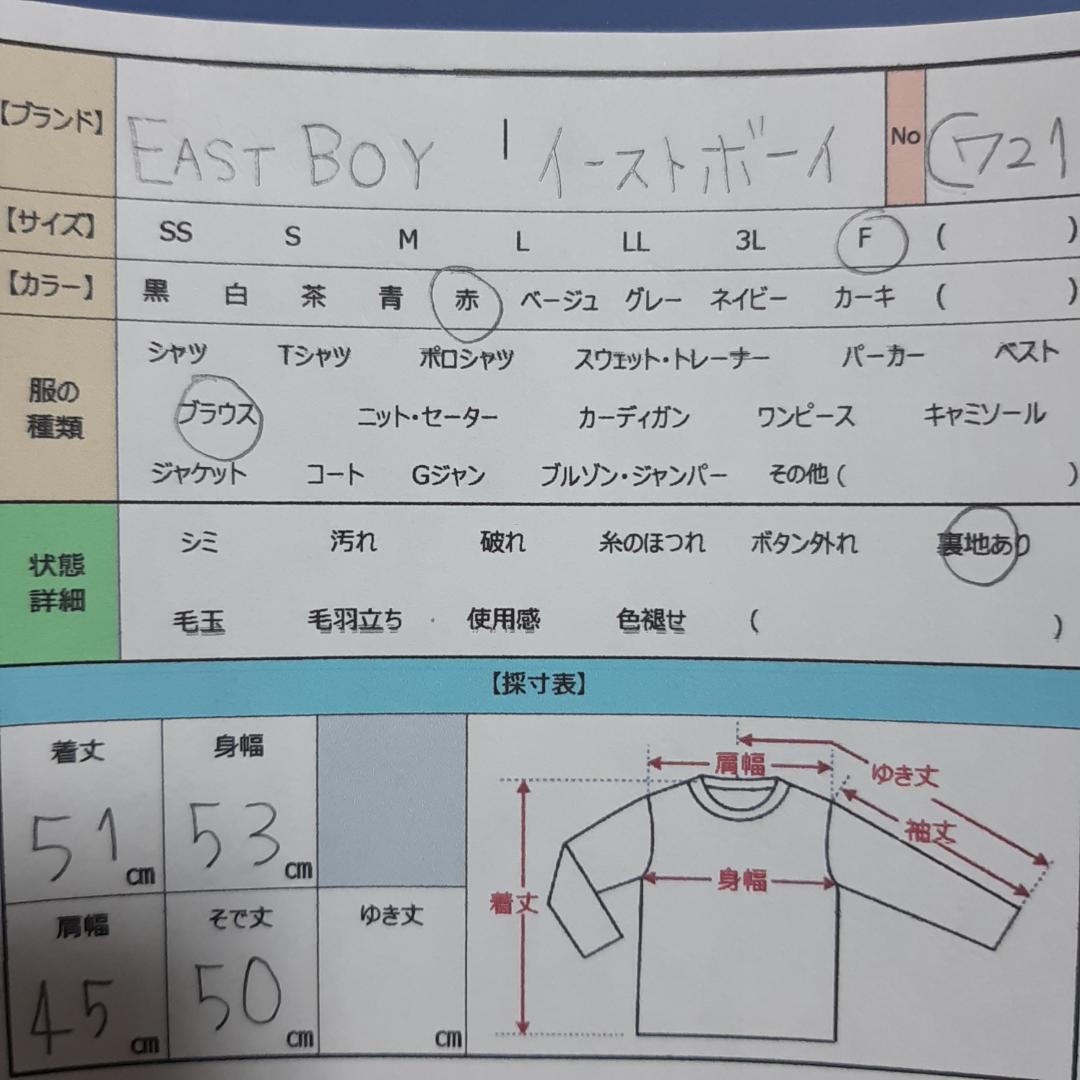 【ブランド】 EAST BOY | イーストボーイ No C721
【サイズ】 SS S M L LL 3L F ( )
【カラー】 黒 白 茶 青 赤 ベージュ グレー ネイビー カーキ ( )
服の種類
シャツ Tシャツ ポロシャツ スウェット・トレーナー パーカー ベスト
ブラウス ニット・セーター カーディガン ワンピース キャミソール
ジャケット コート Gジャン ブルゾン・ジャンパー その他 ( )
状態詳細
シミ 汚れ 破れ 糸のほつれ ボタン外れ 裏地あり
毛玉 毛羽立ち 使用感 色褪せ ( )
【採寸表】
着丈 身幅
51 cm 53 cm
肩幅 そで丈 ゆき丈
45 cm 50 cm cm
肩幅 ゆき丈
袖丈
身幅
着丈